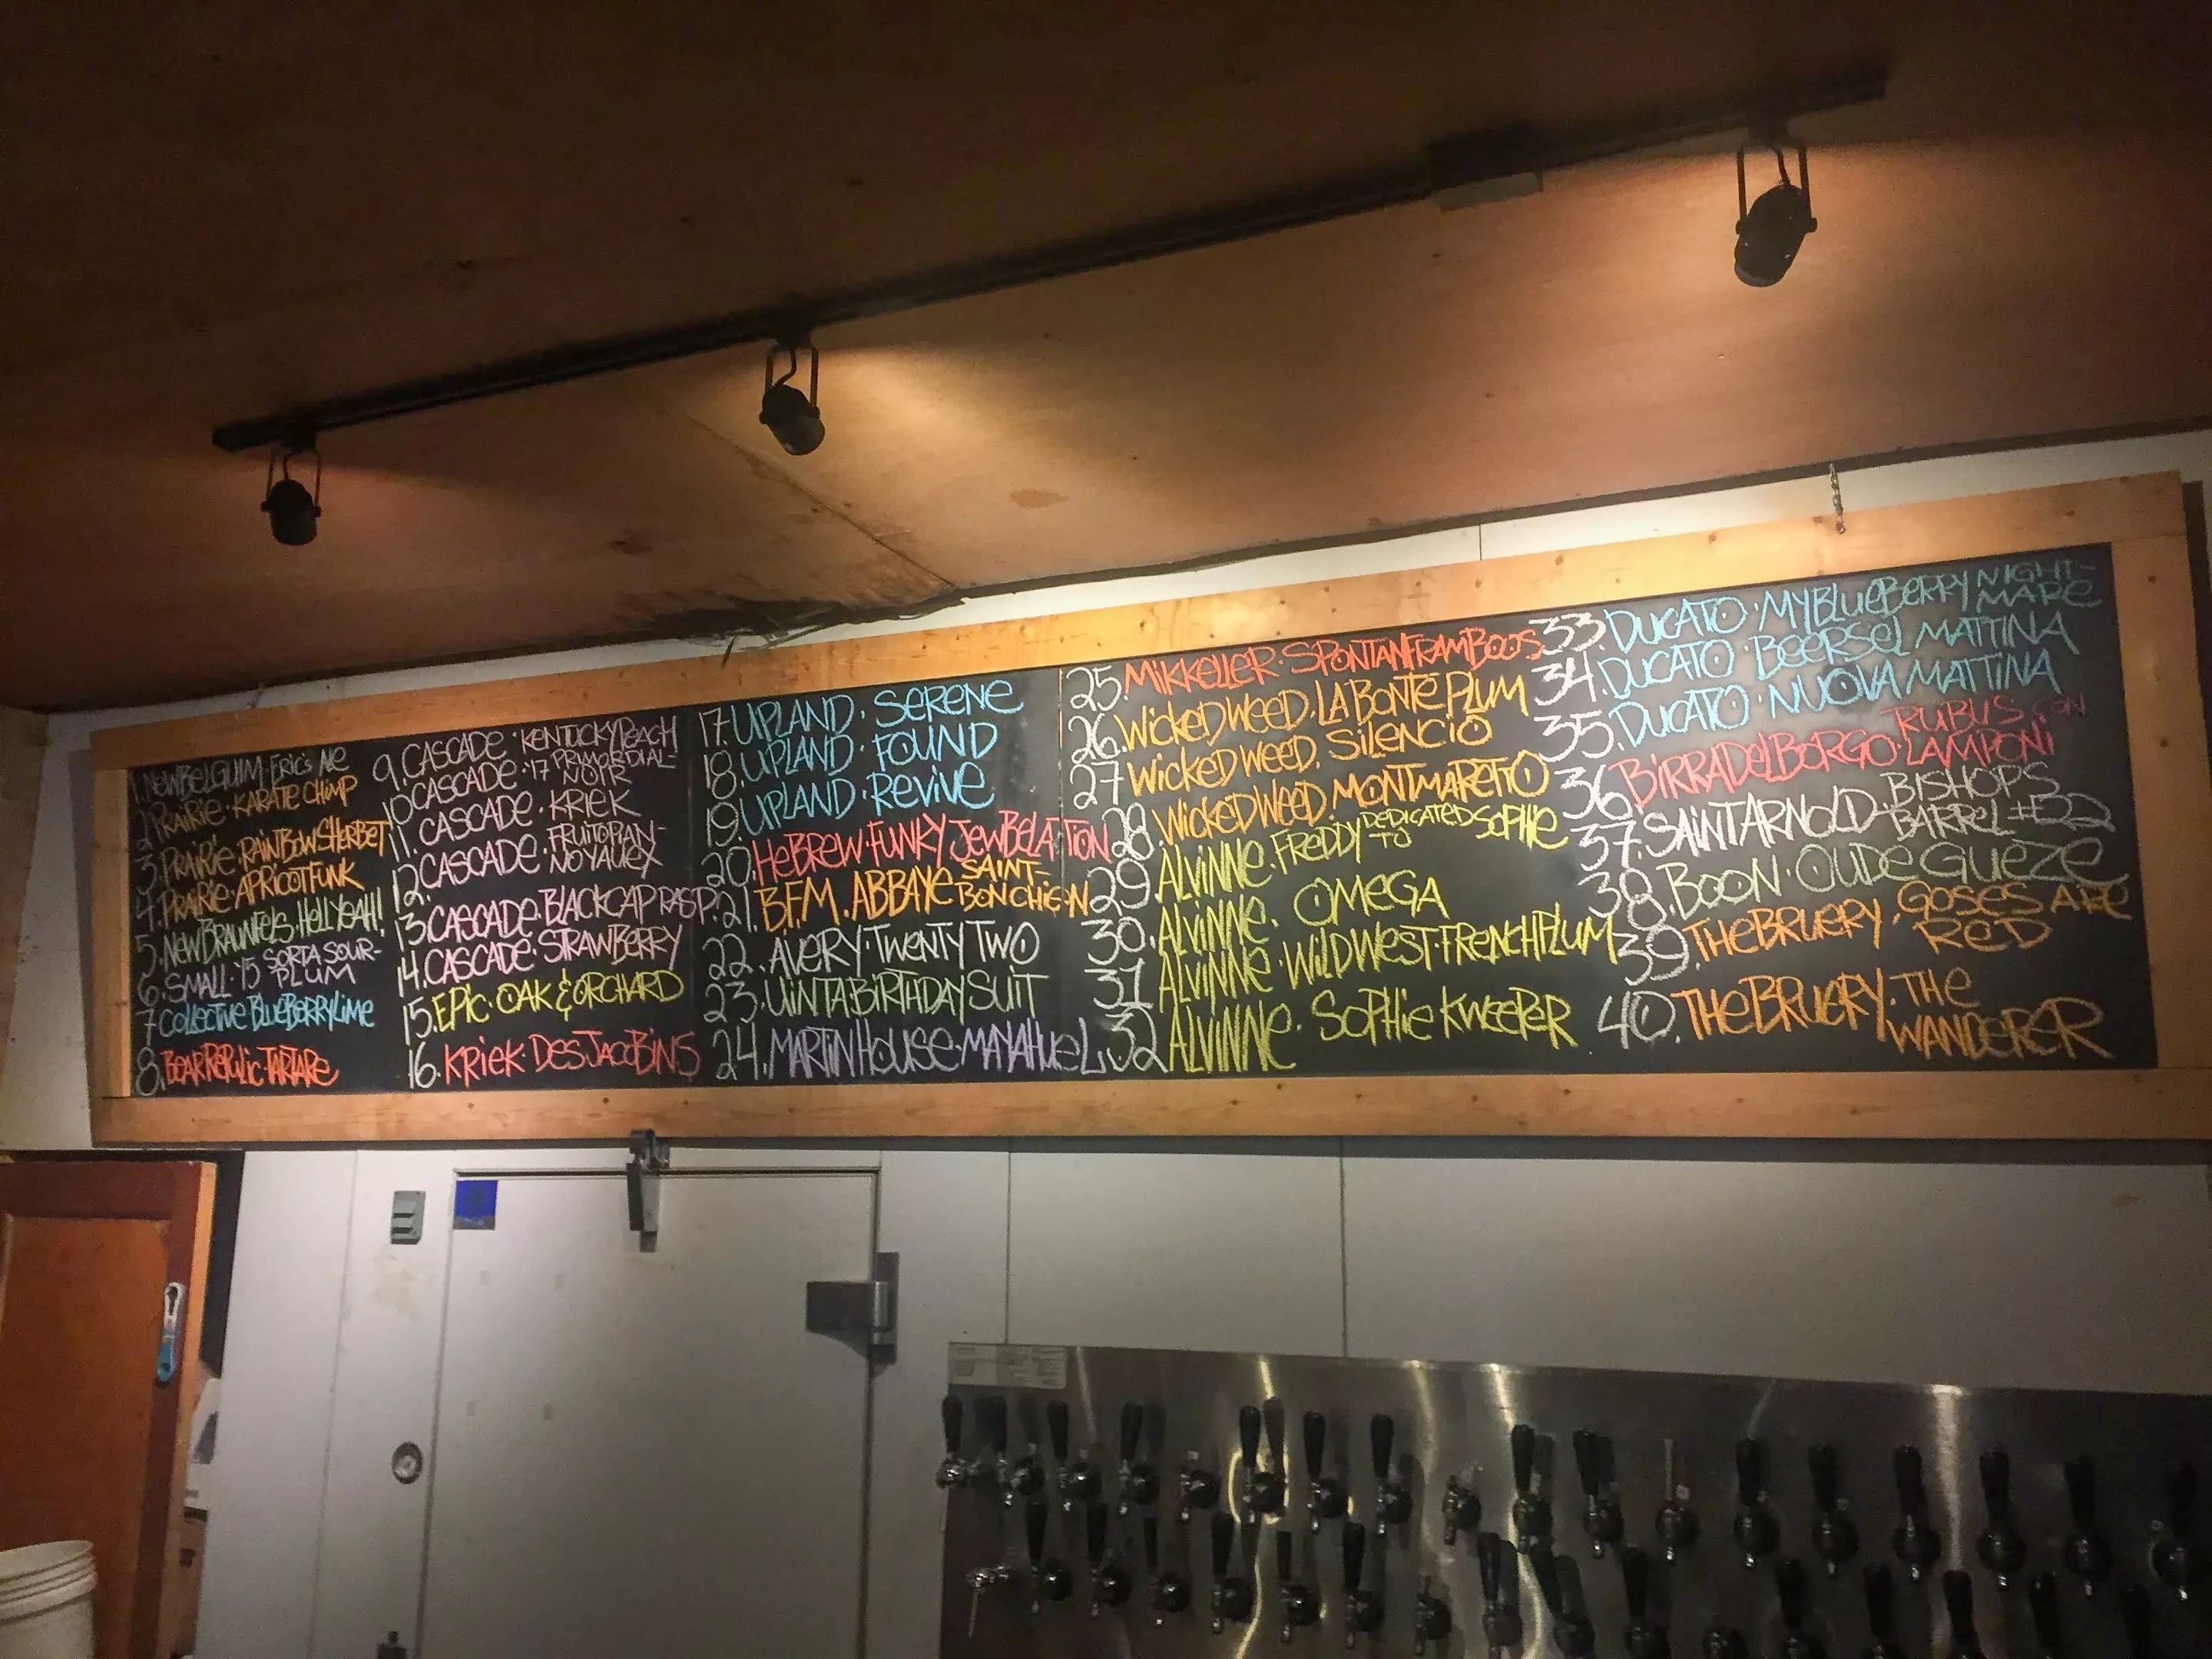 1. NEWBELGUIM · ERIC'S ALE
2. PRAIRIE · KARATE CHIMP
3. PRAIRIE · RAINBOW SHERBET
4. PRAIRIE · APRICOT FUNK
5. NEW BRAUNFELS · HELL YEAH!
6. SMALL · '15 SORTA SOUR-
PLUM
7. COLLECTIVE BLUEBERRY LIME
8. BEAR REPULIC · TARTARE
9. CASCADE · KENTUCKY PEACH
10. CASCADE · '17 PRIMORDIAL-
NOIR
11. CASCADE · KRIEK
12. CASCADE · FRUITOPIAN-
NOYAUEX
13. CASCADE · BLACKCAP RASP.
14. CASCADE · STRAWBERRY
15. EPIC · OAK & ORCHARD
16. KRIEK · DES JACOBINS
17. UPLAND · SERENE
18. UPLAND · FOUND
19. UPLAND · REVIVE
20. HEBREW · FUNKY JEWBELATION
21. B.F.M. ABBAYE SAINT-
BON CHIEN
22. AVERY · TWENTY TWO
23. UINTA · BIRTHDAY SUIT
24. MARTIN HOUSE · MAYAHUEL
25. MIKKELLER · SPONTANFRAMBOOS
26. WICKED WEED · LA BONTÉ PLUM
27. WICKED WEED · SILENCIO
28. WICKED WEED · MONTMARETTO
29. ALVINNE · FREDDY DEDICATED TO SOPHIE
30. ALVINNE · OMEGA
31. ALVINNE · WILD WEST · FRENCH PLUM
32. ALVINNE · SOPHIE KWEEPER
33. DUCATO · MY BLUEBERRY NIGHT-
MARE
34. DUCATO · BEERSEL MATTINA
35. DUCATO · NUOVA MATTINA
36. BIRRA DEL BORGO · RUBUS CON
LAMPONI
37. SAINT ARNOLD · BISHOPS
BARREL #22
38. BOON · OUDE GUEZE
39. THE BRUERY · GOSES ARE
RED
40. THE BRUERY · THE
WANDERER